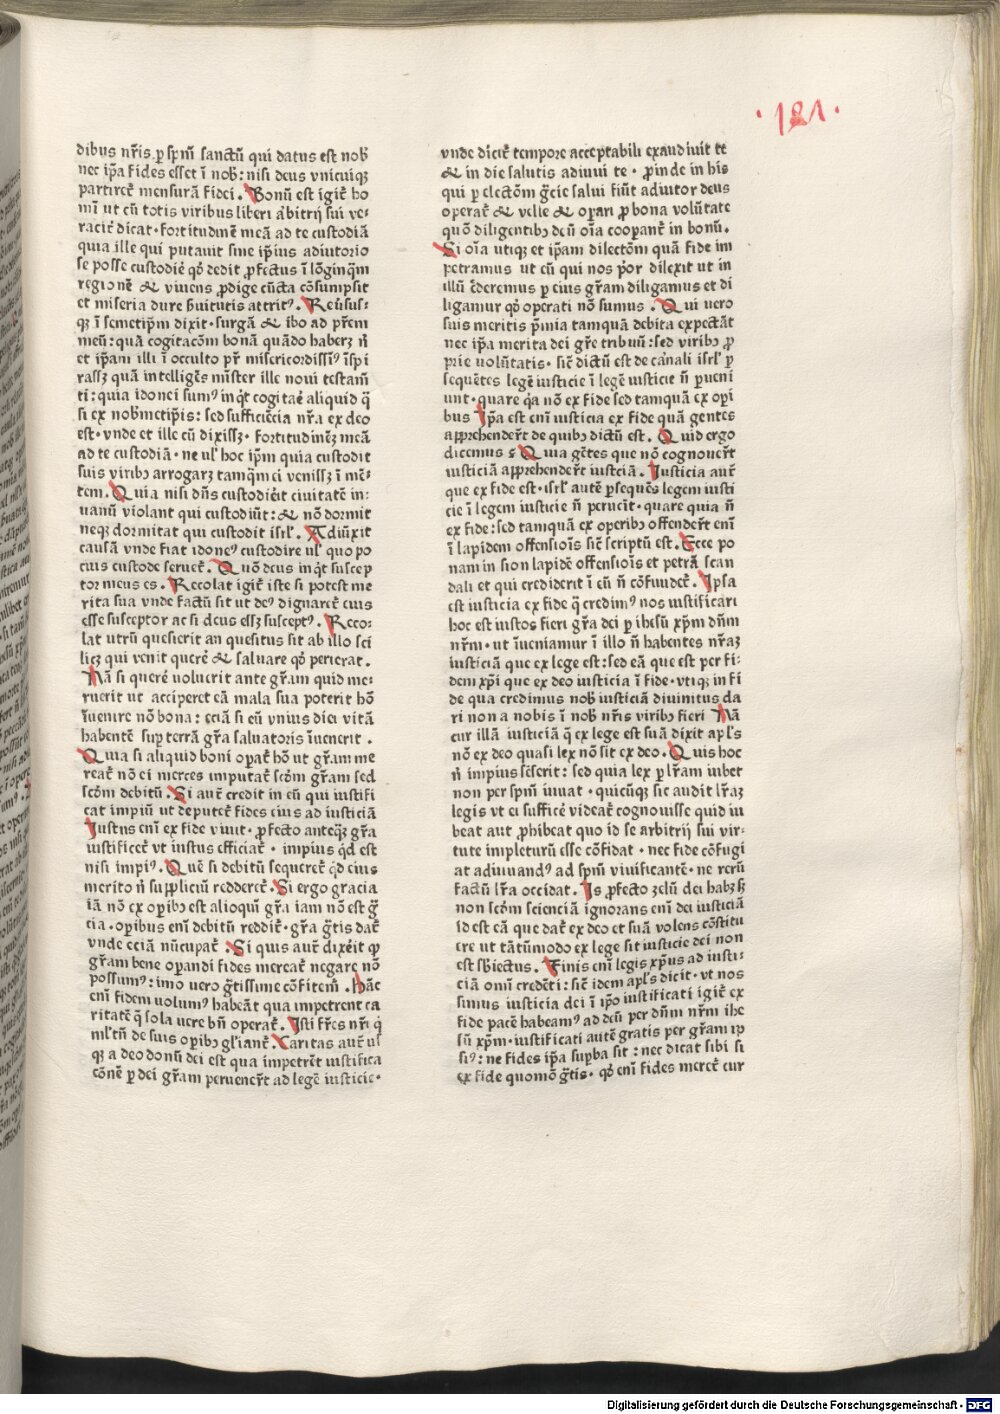 ·121·
dibus nr̃is ꝑ spm̃ sanctũ qui datus est nob̃
nec ip̃a fides esset ĩ nob̃: nisi deus vnicuiqꝫ
partiret̃ mensurã fidei. Bonũ est igit̃ ho
mĩ ut cũ totis viribus liberi arbitrij sui ve-
racit̃ dicat· fortitudinẽ meã ad te custodiã
quia ille qui putauit sine ip̃ius adiutorio
se posse custodiẽ qđ dedit ꝓfectus ĩ lõginq̃m
regionẽ & viuens ꝓdige cũcta cõsumpsit
et miseria dure ẜuitutis attritꝰ. Reũsus-
qꝫ ĩ semetip̃m dixit· surgã & ibo ad pr̃em
meũ: quã cogitacõm bonã quãdo haberꝫ ñ
et ip̃am illi ĩ occulto pr̃ misericordissiꝰ ĩspi
rassꝫ quã intelligẽs mĩster ille noui testam̃
ti: quia idonei sumꝰ inq̃t cogitaẽ aliquid q̃
si ex nob̃metip̃is: sed sufficiẽcia nr̃a ex deo
est· vnde et ille cũ dixissꝫ· fortitudinẽꝫ meã
ad te custodiã· ne ul̃ hoc ip̃m quia custodit
suis viribꝰ arrogarꝫ tamq̃m ei venissꝫ ĩ mẽ-
tem. Quia nisi dñs custodiẽit ciuitatẽ in-
uanũ violant qui custodiũt: & nõ dormit
neqꝫ dormitat qui custodit isrl̃. Adiũxit
causã vnde fiat idoneꝰ custodire ul̃ quo po
cius custode seruet̃. Quõ deus inq̃t suscep
tor meus es. Recolat igit̃ iste si potest me
rita sua vnde factũ sit ut deꝰ dignaret̃ eius
esse susceptor ac si deus essꝫ susceptꝰ. Reco-
lat utrũ quesierit an quesitus sit ab illo sci
licꝫ qui venit querẽ & saluare qđ perierat.
Nã si querẽ uolucrit ante gr̃am quid me-
ruerit ut acciperet eã mala sua poterit hõ
ĩuenire nõ bona: eciã si eũ vnius diei vitã
habentẽ suꝑ terrã gr̃a saluatoris ĩuenerit.
Quia si aliquid boni oꝑat̃ hõ ut gr̃am me
reat̃ nõ ei merces imputat̃ scđm gr̃am sed
scđm debitũ. Si aut̃ credit in eũ qui iustifi
cat impiũ ut deputet̃ fides eius ad iusticiã
Iustus enĩ ex fide viuit· ꝓfecto anteq̃ꝫ gr̃a
iustificet̃ vt iustus efficiat̃· impius qd est
nisi impiꝰ. Quẽ si debitũ sequeret̃ qd eius
merito ñ suppliciũ redderet̃. Si ergo gracia
iã nõ ex oꝑibꝰ est alioqui gr̃a iam nõ est g̃
cia· oꝑibus enĩ debitũ reddit̃· gr̃a g̃tis dat̃
vnde eciã nũcupat̃. Si quis aut̃ dixẽit ꝙ
gr̃am bene oꝑandi fides mereat̃ negare nõ
possumꝰ: imo uero g̃tissime cõfitem̃. Hãc
enĩ fidem uolumꝰ habeãt qua impetrent ca
ritatẽ q̃ sola uere bñ operat̃. Isti fr̃es nr̃i q̃
ml̃tũ de suis oꝑibꝰ gl̃iant̃. Caritas aut̃ ul̃
qꝫ a deo donũ dei est qua impetrẽt iustifica
cõnẽ ꝑ dei gr̃am peruener̃t ad legẽ iusticie·
vnde dicit̃ tempore acceptabili exaudiuit te
& in die salutis adiuui te· ꝓinde in his
qui ꝑ electõm g̃cie salui fiũt adiutor deus
operat̃ & velle & oꝑari ꝓ bona volũtate
quõ diligentibꝰ deũ oĩa cooꝑant̃ in bonũ.
Si oĩa utiqꝫ et ip̃am dilectõm quã fide im
petramus ut eũ qui nos p̃or dilexit ut in
illũ c̃deremus ꝑ eius gr̃am diligamus et di
ligamur qđ operati nõ sumus. Qui uero
suis meritis p̃mia tamquã debita expectãt
nec ip̃a merita dei gr̃e tribuũ: sed viribꝰ ꝓ
prie volũtatis· sic̃ dictũ est de carnali isrl̃ ꝑ
sequẽtes legẽ iusticie ĩ legẽ iusticie ñ ꝑueni
unt· quare q̃a nõ ex fide sed tamquã ex oꝑi
bus Ip̃a est enĩ iusticia ex fide quã gentes
apprehender̃t de quibꝰ dictũ est. Quid ergo
dicemus ẜ Quia gẽtes que nõ cognouer̃t
iusticiã apprehender̃t iusticiã. Iusticia aut̃
que ex fide est· isrl̃ autẽ ꝑsequẽs legem iusti
cie ĩ legem iusticie ñ peruẽit· quare quia ñ
ex fide: sed tamquã ex operibꝰ offender̃t enĩ
ĩ lapidem offensiõis sic̃ scriptũ est. Ecce po
nam in sion lapidẽ offensiõis et petrã scan
dali et qui crediderit ĩ eũ ñ cõfuudet̃. Ipsa
est iusticia ex fide q̃ credimꝰ nos iustificari
hoc est iustos fieri gr̃a dei ꝑ ihesũ xp̃m dñm
nr̃m· ut ĩueniamur ĩ illo ñ habentes nr̃aꝫ
iusticiã que ex lege est: sed eã que est per fi-
dem xp̃i que ex deo iusticia ĩ fide· vtiqꝫ in fi
de qua credimus nob̃ iusticiã diuinitus da
ri non a nobis ĩ nob̃ nr̃is viribꝰ fieri Nã
cur illã iusticiã q̃ ex lege est suã dixit apl̃s
nõ ex deo quasi lex nõ sit ex deo. Quis hoc
ñ impius sẽserit: sed quia lex ꝑ lr̃am iubet
non per spm̃ iuuat· quicũqꝫ sic audit lr̃aꝫ
legis vt ei sufficẽ videat̃ cognouisse quid iu
beat aut ꝓhibeat quo id se arbitrij sui vir-
tute impleturũ esse cõfidat· nec fide cõfugi
at adiuuandꝰ ad spm̃ viuificantẽ· ne reũ
factũ lr̃a occidat. Is ꝓfecto zelũ dei habꝫ sꝫ
non scđm scienciã ignorans enĩ dei iusticiã
id est eã que dat̃ ex deo et suã volens cõstitu
ere ut tãtũmodo ex lege sit iusticie dei non
est sb̃iectus. Finis enĩ legis xp̃us ad iusti-
ciã omĩ credẽti: sic̃ idem apl̃s dicit· vt nos
simus iusticia dei ĩ ip̃o iustificati igit̃ ex
fide pacẽ habeamꝰ ad deũ per dñm nr̃m ihe
sũ xp̃m· iustificati autẽ gratis per gr̃am ip
siꝰ: ne fides ip̃a suꝑba sit: nec dicat sibi si
ex fide quomõ g̃tis· qđ enĩ fides meret̃ cur
Digitalisierung gefördert durch die Deutsche Forschungsgemeinschaft - DFG